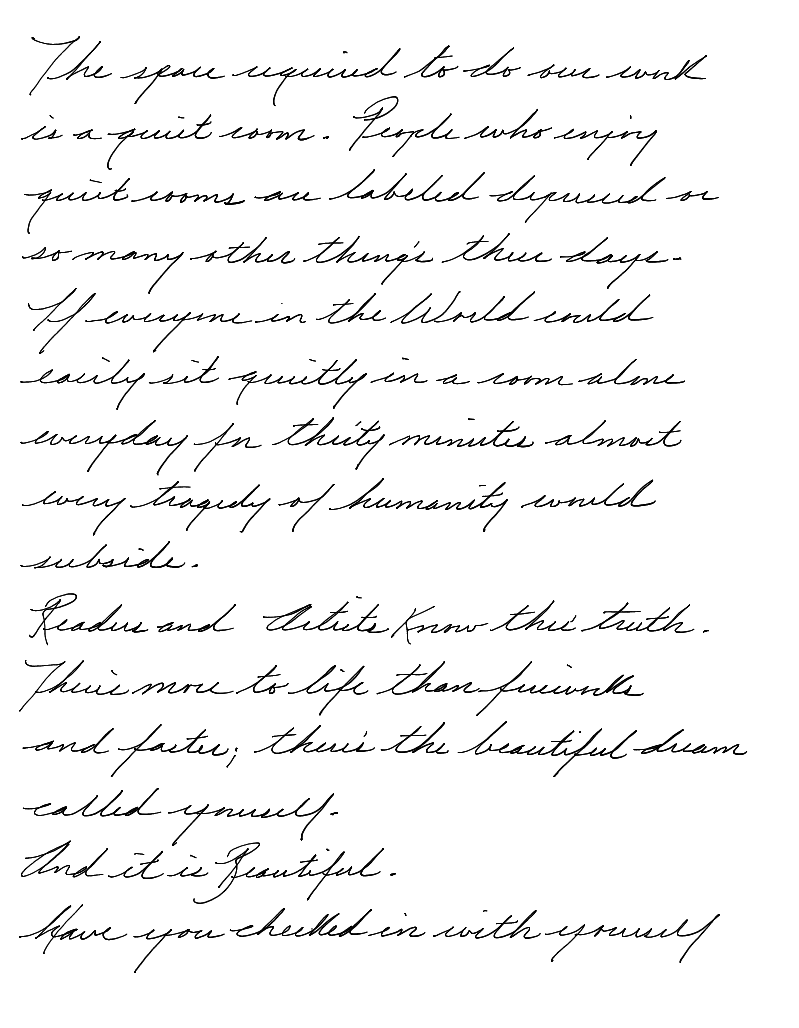 The space required to do our work
is a quiet room. People who enjoy
quiet rooms are labeled depressed or
so many other things these days.
If everyone in the World could
easily sit quietly in a room alone
everyday for thirty minutes almost
every tragedy of humanity would
subside.
Readers and Artists Know this truth.
There's more to life than fireworks
and faster; there's the beautiful dream
called yourself.
And it is Beautiful.
Have you checked in with yourself